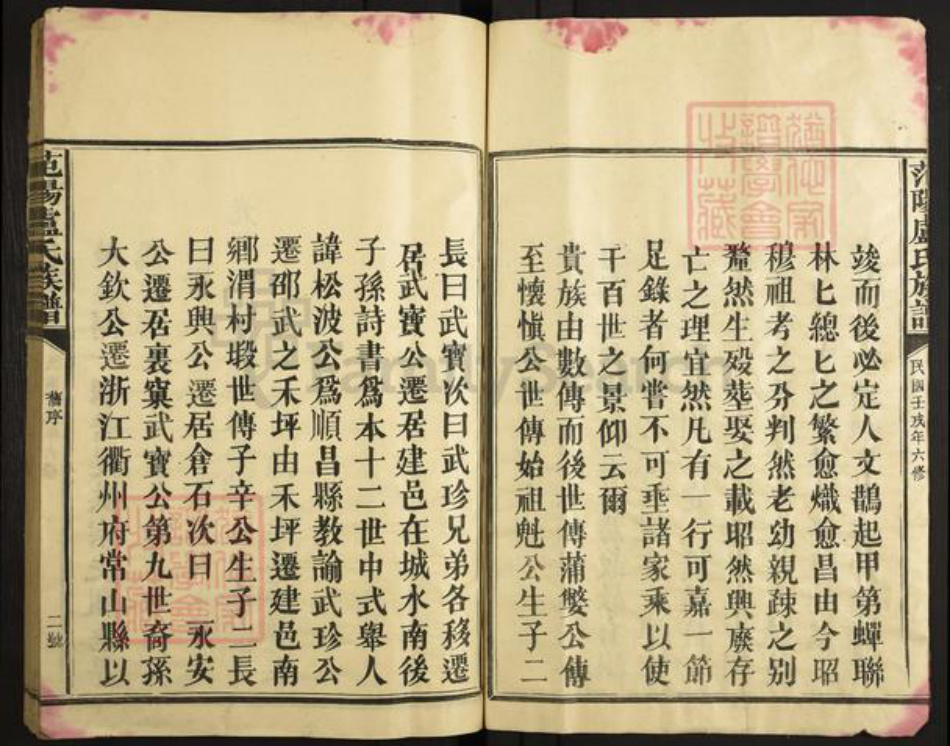 范陽盧氏族譜
民國壬戌年六修
竣而後必定人文鵲起甲第蟬聯
林匕總匕之繁愈熾愈昌由今昭
穆祖考之分判然老幼親疎之别
釐然生殁塟娶之載昭然興廢存
亡之理宜然凡有一行可嘉一節
足錄者何嘗不可垂諸家乘以使
千百世之景仰云爾
貴族由數傳而後世傳蒲嫢公傳
至懷愼公世傳始祖魁公生子二
長曰武寶次曰武珍兄弟各移遷
居武寶公遷居建邑在城水南後
子孫詩書爲本十二世中式舉人
諱松波公爲順昌縣教諭武珍公
遷邵武之禾坪由禾坪遷建邑南
鄉渭村塅世傳子辛公生子二長
曰永興公遷居倉石次曰永安
公遷居裏窠武寶公第九世裔孫
大欽公遷浙江衢州府常山縣以
范陽盧氏族譜
舊序
二號